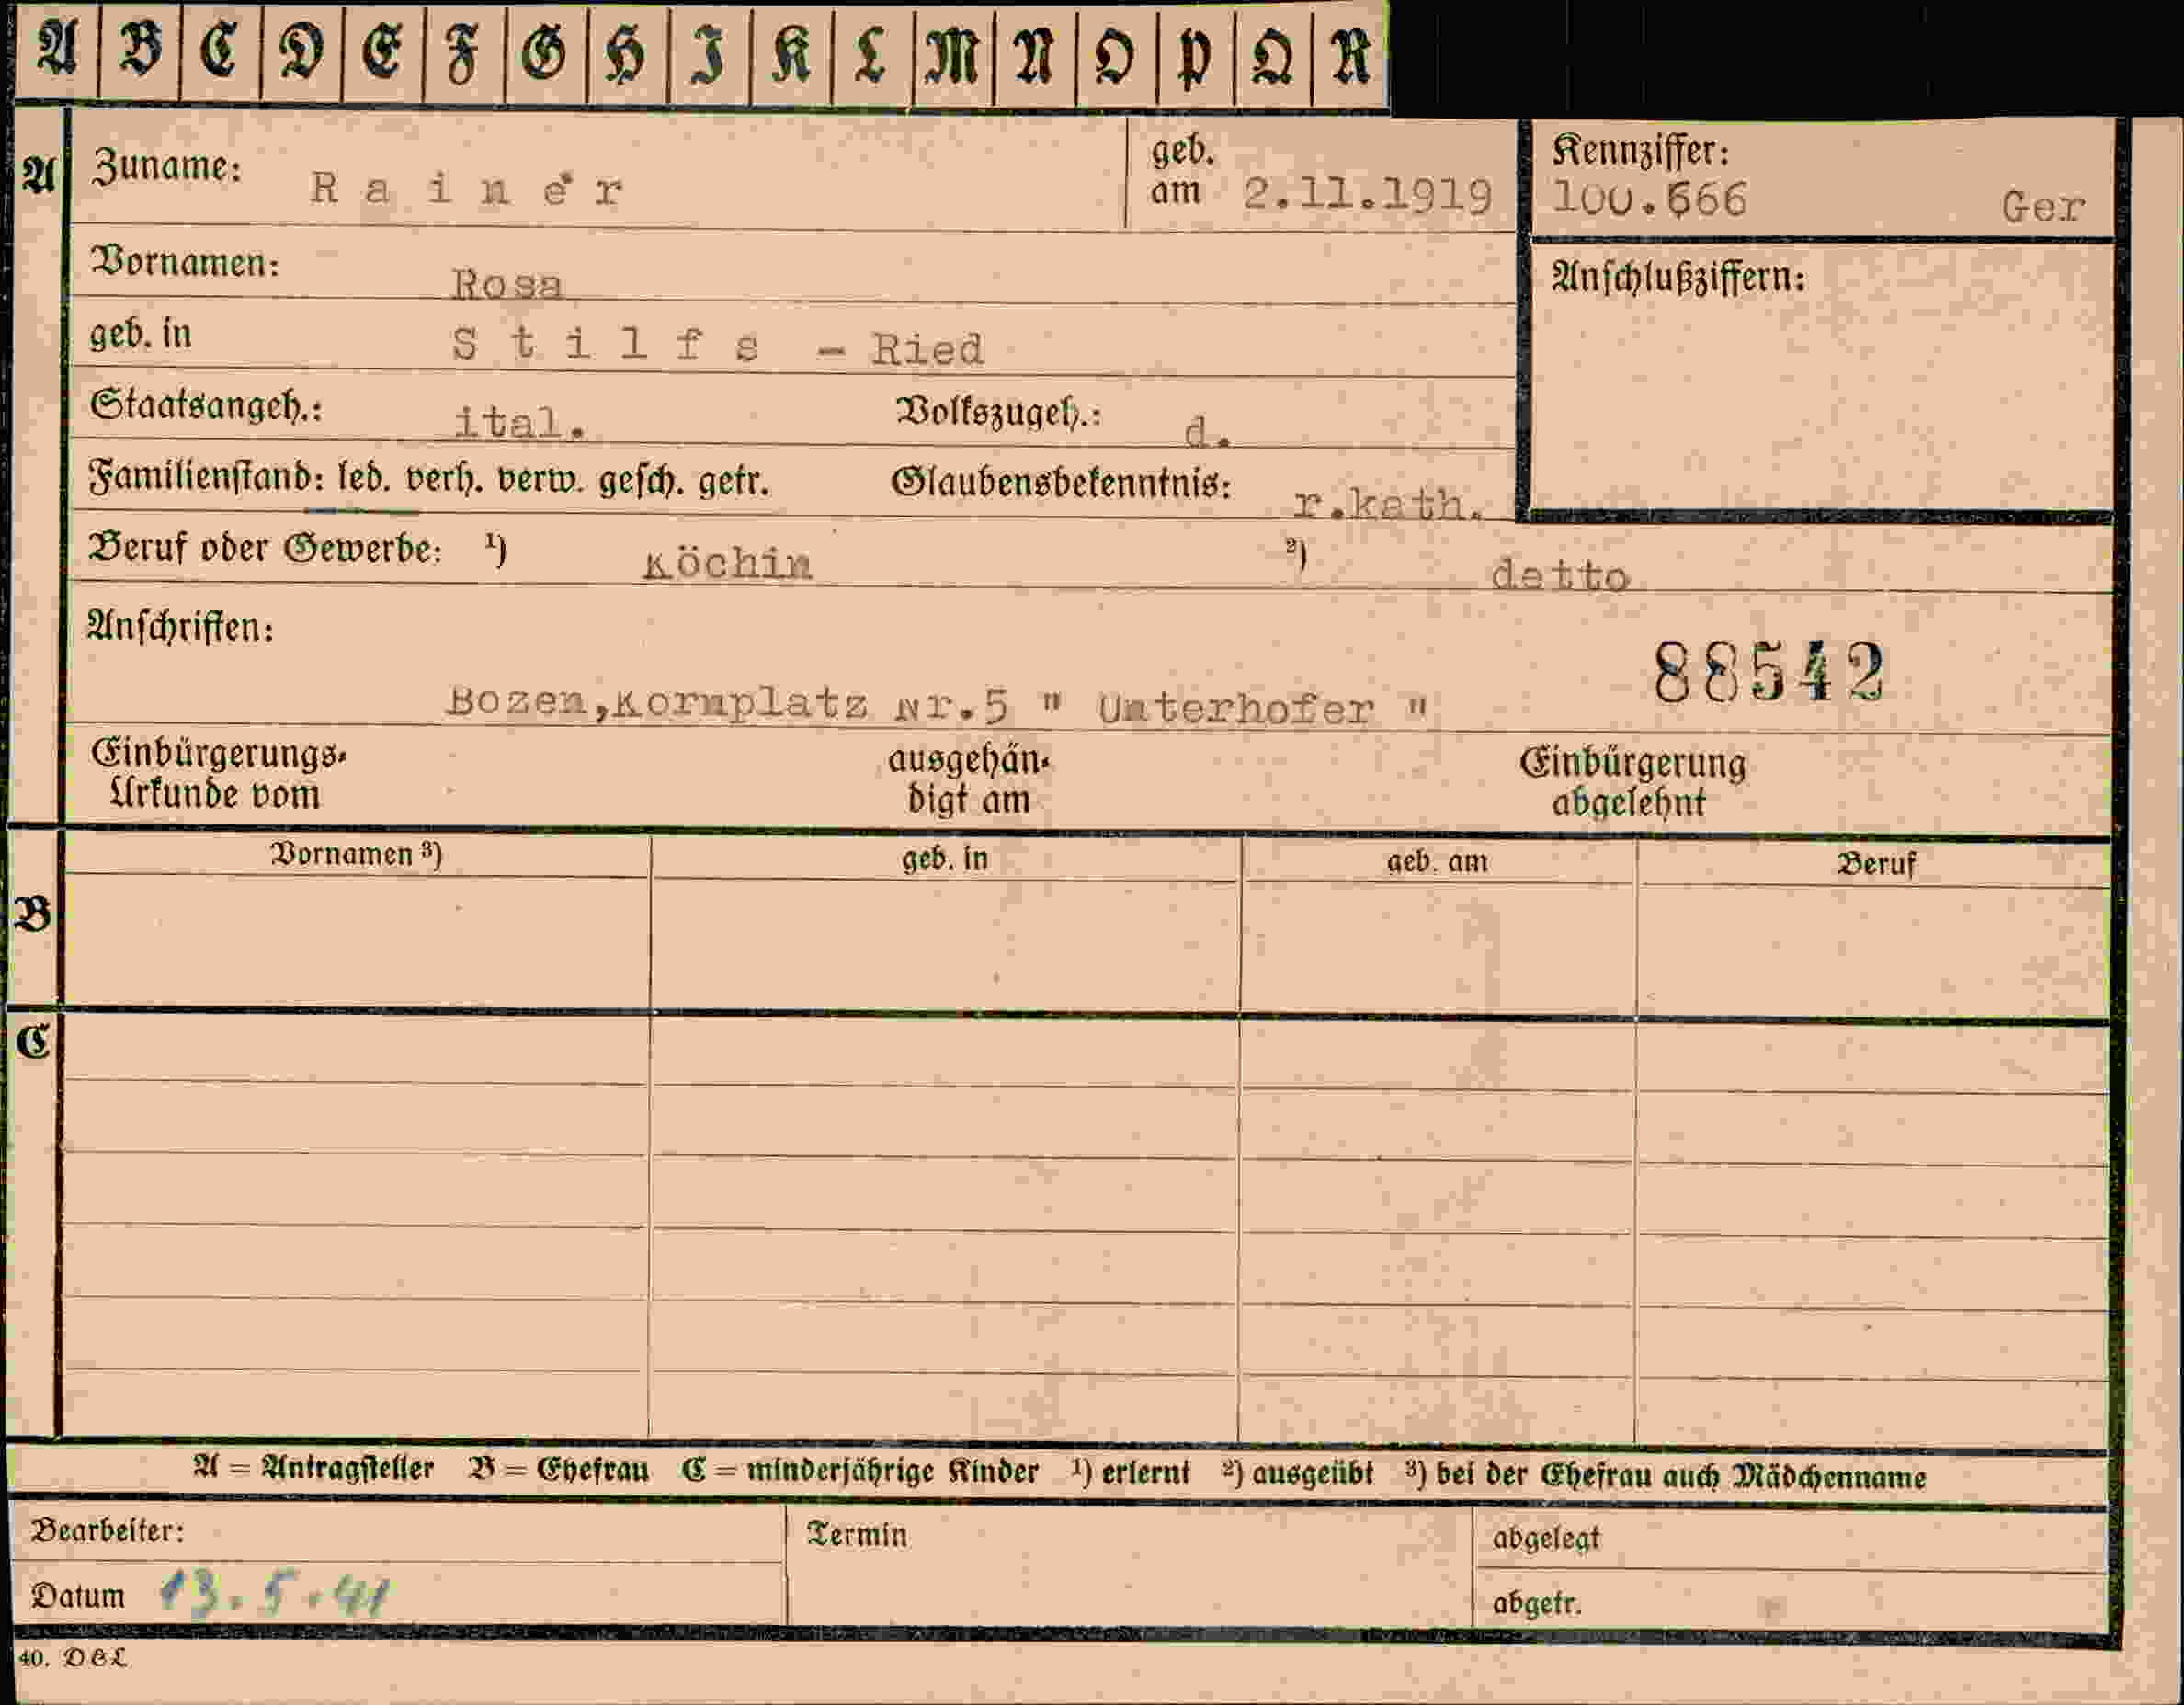 A B C D E F G H I K L M N O P Q R
A Zuname: Rainer geb. am 2.11.1919 Kennziffer: 100.666 Ger
Vornamen: Rosa Anschlußziffern:
geb. in Stilfs - Ried
Staatsangeh.: ital. Volkszugeh.: d.
Familienstand: led. verh. verw. gesch. getr. Glaubensbekenntnis: r.kath.
Beruf oder Gewerbe: ¹) Köchin ²) detto
Anschriften:
88542
Bozen,Kornplatz Nr.5 " Unterhofer "
Einbürgerungs-Urkunde vom ausgehändigt am Einbürgerung abgelehnt
Vornamen ³) geb. in geb. am Beruf
B
C
A = Antragsteller B = Ehefrau C = minderjährige Kinder ¹) erlernt ²) ausgeübt ³) bei der Ehefrau auch Mädchenname
Bearbeiter: Termin abgelegt
Datum 13.5.41 abgetr.
40. D&L